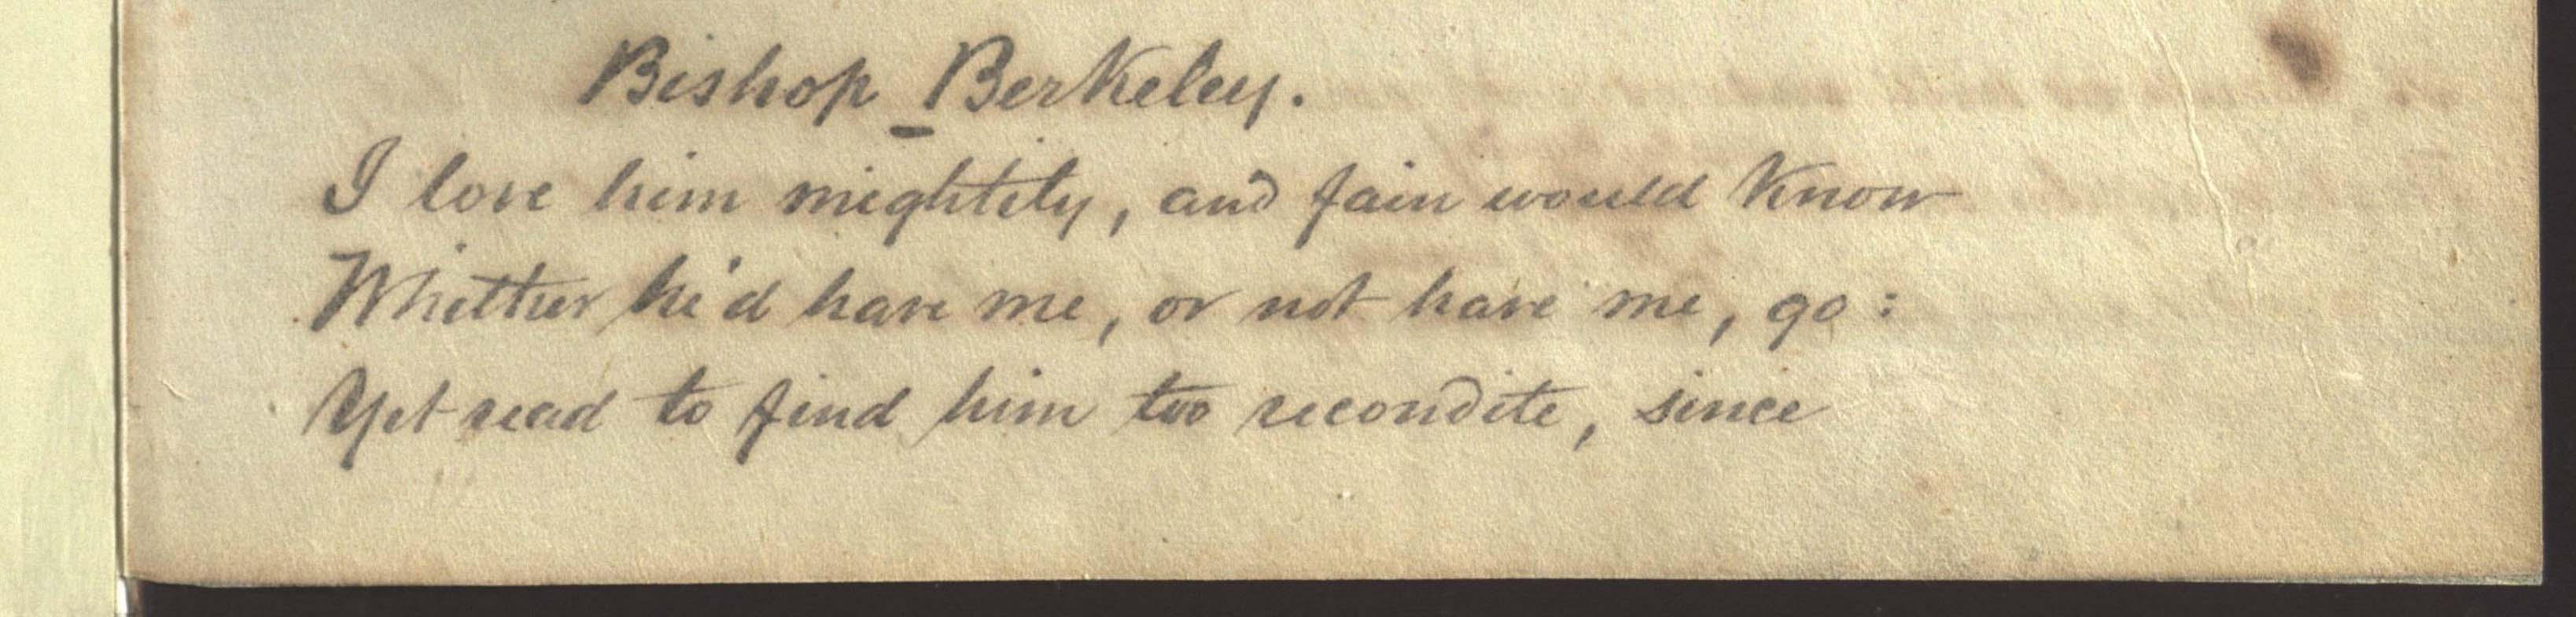 Bishop Berkeley.
I love him mightily, and fain would know
Whither he'd have me, or not have me, go:
Yet read to find him too recondite, since